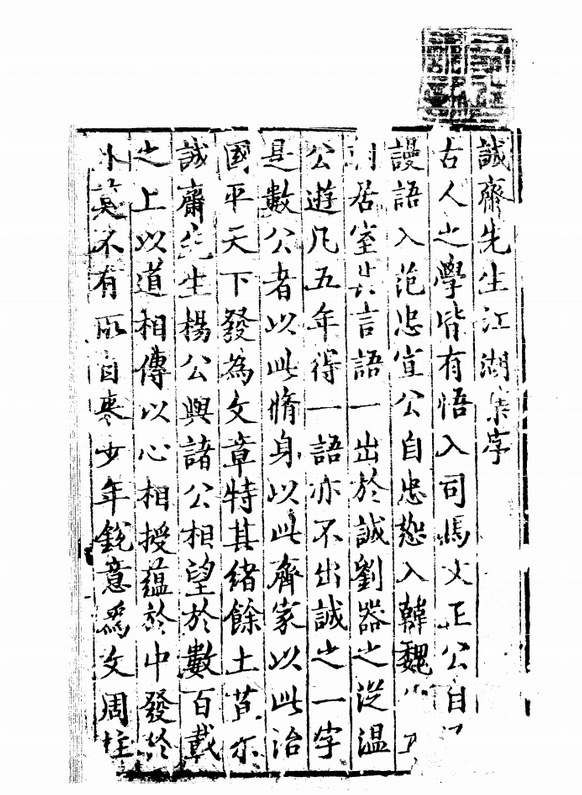 誠齋先生江湖集序
古人之學皆有悟入司馬文正公自
謾語入范忠宣公自忠恕入韓魏
居室共言語一出於誠劉器之從溫
公遊凡五年得一語亦不出誠之一字
是數公者以此脩身以此齊家以此治
國平天下發為文章特其緒餘土苴亦
誠齋先生楊公與諸公相望於數百載
之上以道相傳以心相授蘊於中發於
外莫不有所自來少年銳意為文周柱